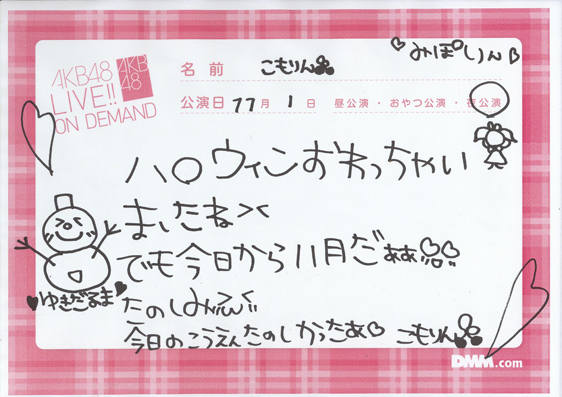 AKB48
LIVE!!
ON DEMAND
AKB
48
名前 こもりん
みぽりん
公演日 11月1日 昼公演・おやつ公演・夜公演
ハロウィンおわっちゃい
ましたね><
でも今日から11月だぁぁ
ゆきだるま
たのしみ
今日のこうえんたのしかったあ♡ こもりん
DMM.com